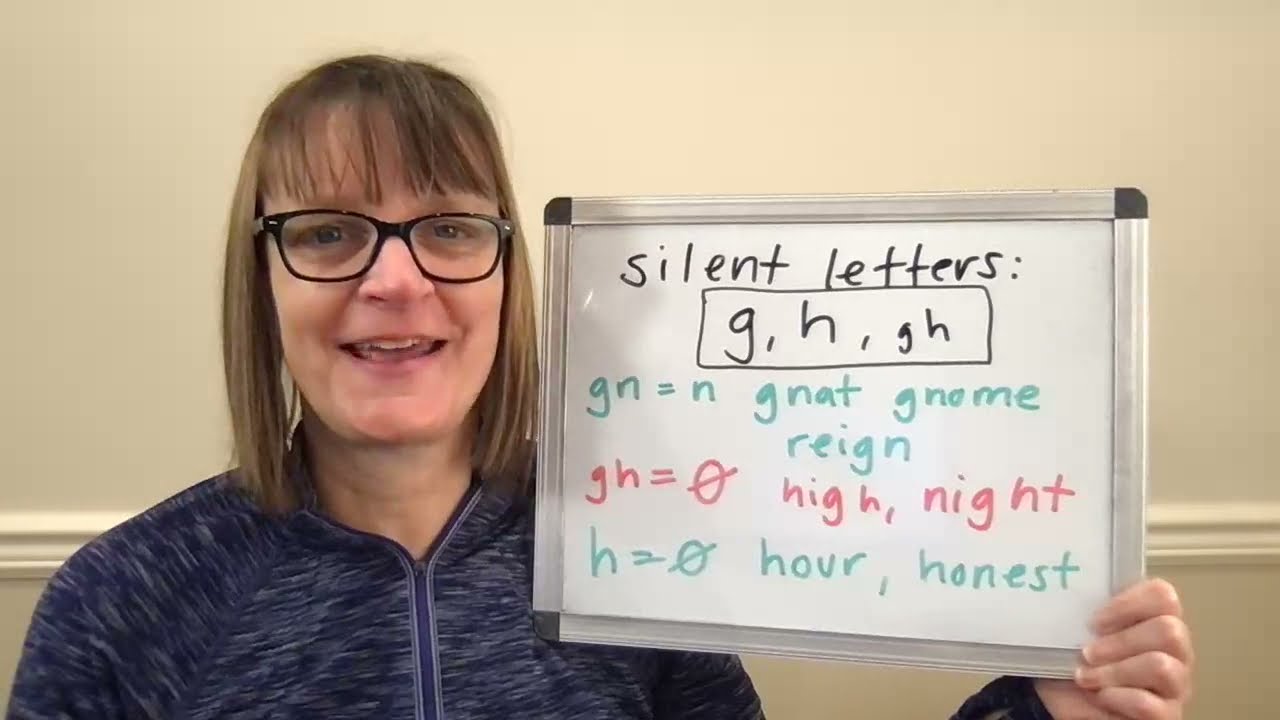 silent letters:
g, h, gh
gn = n gnat gnome
reign
gh = Ø high, night
h = Ø hour, honest